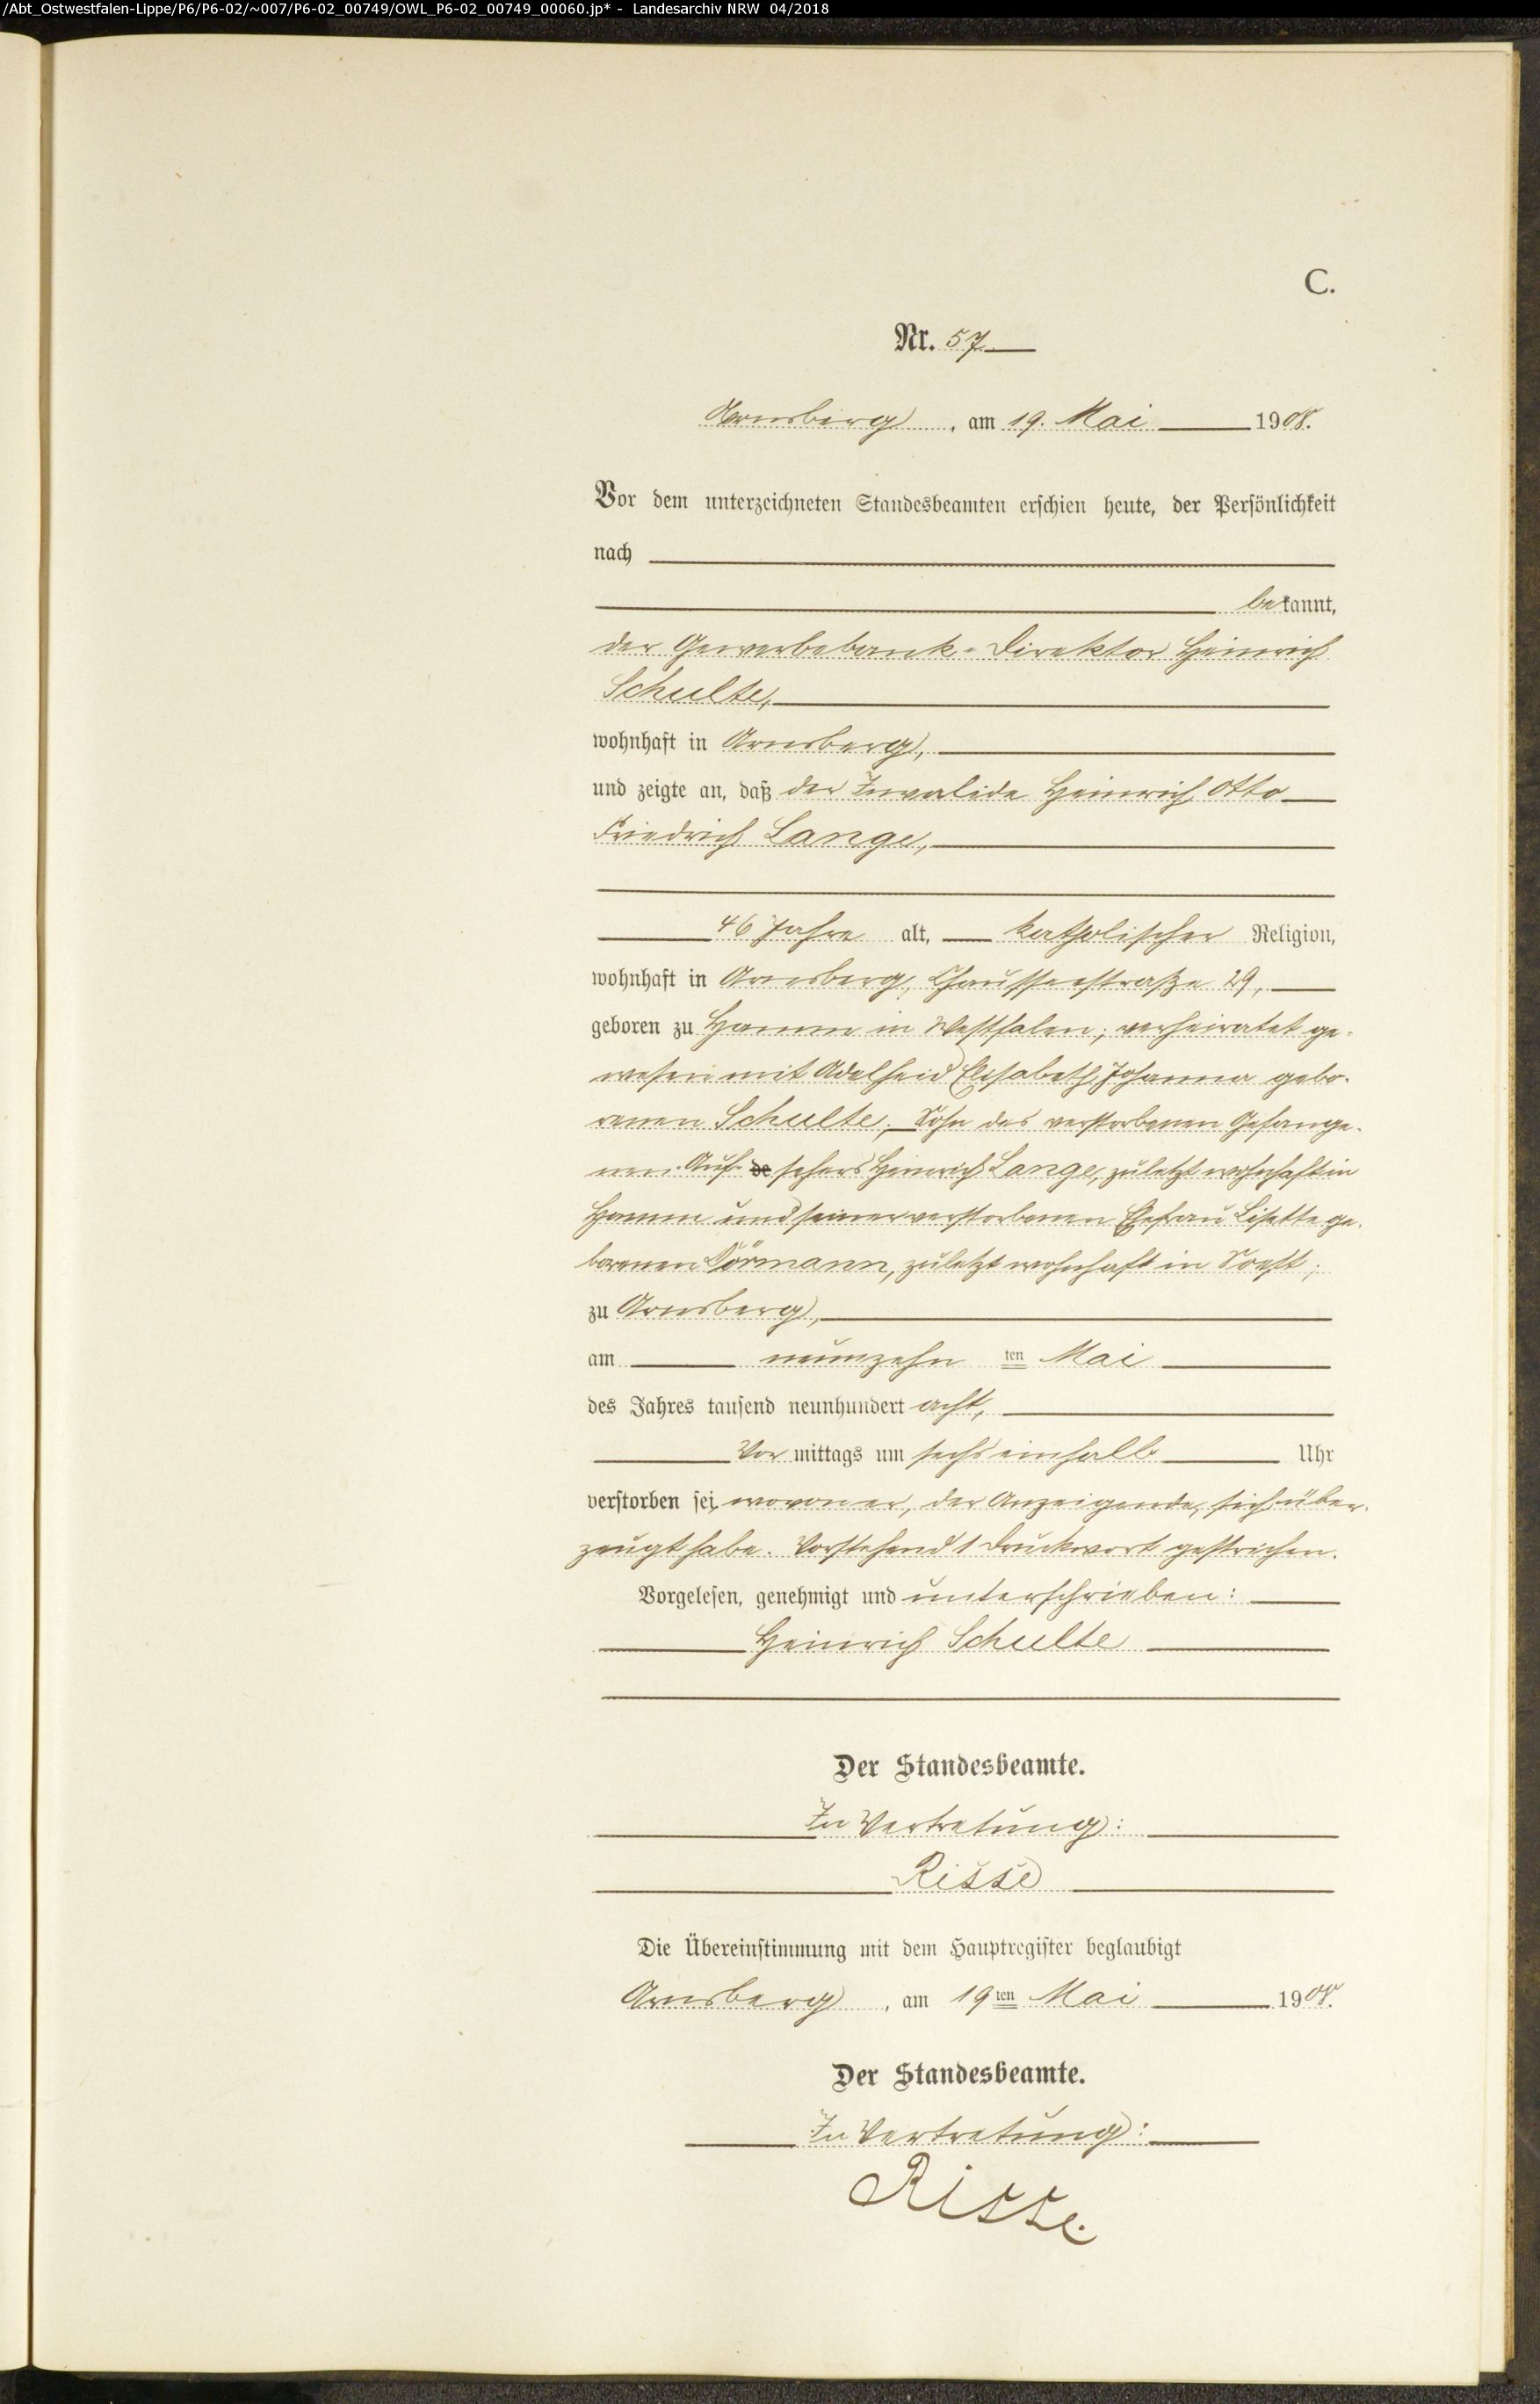 /Abt_Ostwestfalen-Lippe/P6/P6-02/~007/P6-02_00749/OWL_P6-02_00749_00060.jp* - Landesarchiv NRW 04/2018
C.
Nr. 57
Arnsberg, am 19. Mai 1908.
Vor dem unterzeichneten Standesbeamten erschien heute, der Persönlichkeit
nach
bekannt,
der Gewerbebank-Direktor Heinrich
Schulte,
wohnhaft in Arnsberg,
und zeigte an, daß der Invalide Heinrich Otto
Friedrich Lange,
46 Jahre alt, katholischer Religion,
wohnhaft in Arnsberg, Chausseestraße 29,
geboren zu Hamm in Westfalen; verheiratet ge-
wesen mit Adelheid Elisabeth Johanna gebo-
renen Schulte; Sohn des verstorbenen Gefange-
nen-Auf- de sehers Heinrich Lange, zuletzt wohnhaft in
Hamm und seiner verstorbenen Ehefrau Lisette ge-
borenen Dörmann, zuletzt wohnhaft in Soest;
zu Arnsberg,
am neunzehn ten Mai
des Jahres tausend neunhundert acht,
Vor mittags um sechs einhalb Uhr
verstorben sei, wovon er, der Anzeigende, sich über-
zeugt habe. Vorstehend 1 Druckwort gestrichen.
Vorgelesen, genehmigt und unterschrieben:
Heinrich Schulte
Der Standesbeamte.
In Vertretung:
Risse
Die Übereinstimmung mit dem Hauptregister beglaubigt
Arnsberg, am 19ten Mai 1908.
Der Standesbeamte.
In Vertretung:
Risse.